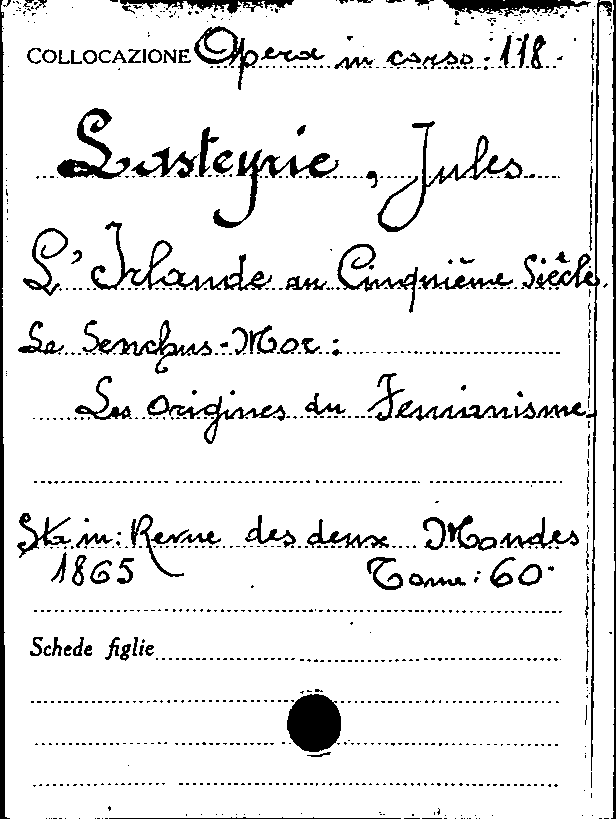 COLLOCAZIONE Opera in corso: 118.
Lasteyrie, Jules.
L'Irlande au Cinquième Siècle.
Le Senchus-Mor:
Les Origines du Fenianisme.
Sta in: Revue des deux Mondes
1865 Tome: 60.
Schede figlie